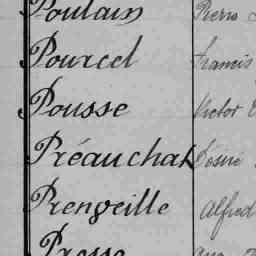 Poulain Pierre
Pourcel Francis
Pousse Victor
Préauchat Désiré
Prengeille Alfred
Presse